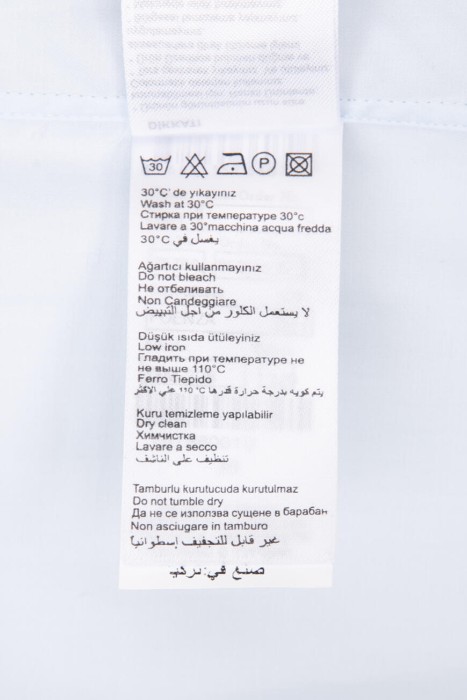 DİKKAT!
30
P
30°C' de yıkayınız
Wash at 30°C
Стирка при температуре 30°c
Lavare a 30°macchina acqua fredda
يغسل في 30°C
Ağartıcı kullanmayınız
Do not bleach
Не отбеливать
Non Candeggiare
لا يستعمل الكلور من أجل التبييض
Düşük ısıda ütüleyiniz
Low iron
Гладить при температуре не
не выше 110°C
Ferro Tiepido
يتم كويه بدرجة حرارة قدرها 110 °C علي الاكثر
Kuru temizleme yapılabilir
Dry clean
Химчистка
Lavare a secco
تنظيف على الناشف
Tamburlu kurutucuda kurutulmaz
Do not tumble dry
Да не се използва сушене в барабан
Non asciugare in tamburo
غير قابل للتجفيف إسطوانياً
صنع في: تركيا